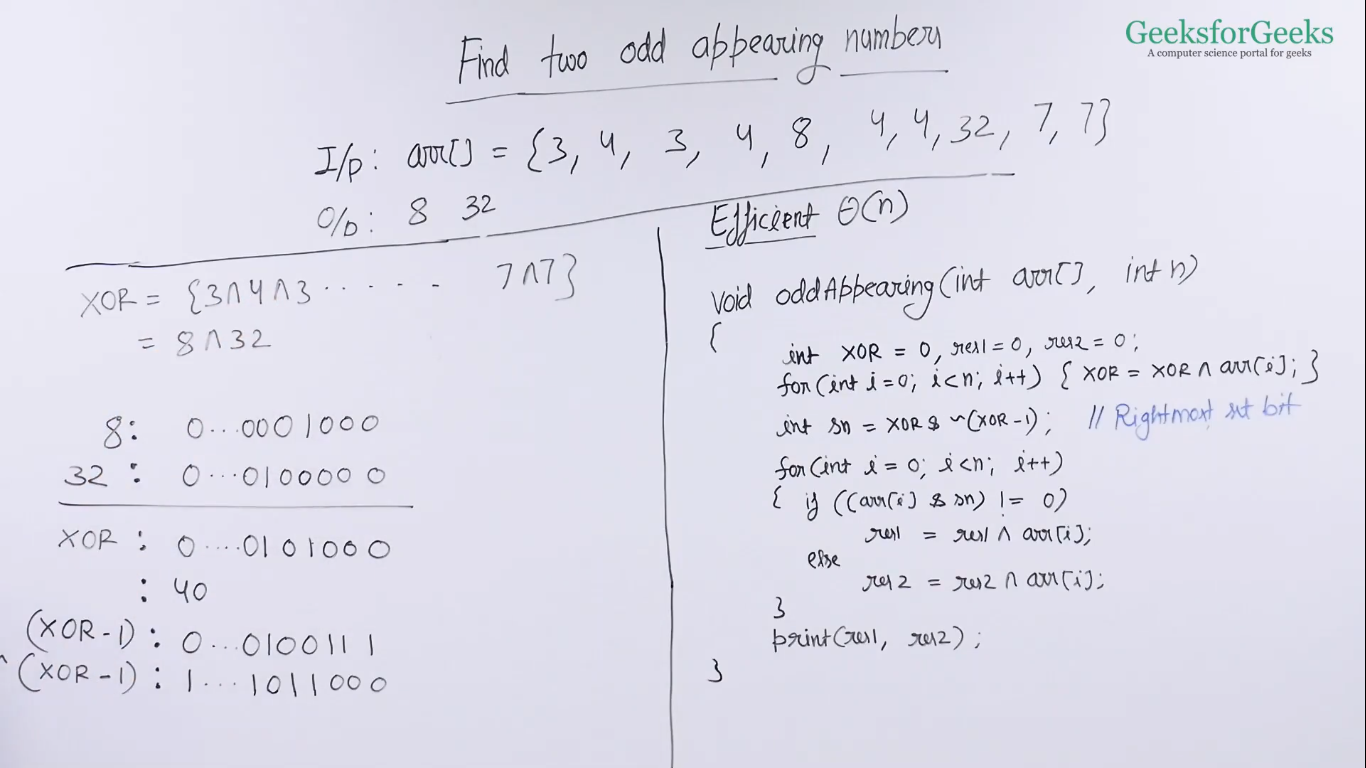 GeeksforGeeks
A computer science portal for geeks
Find two odd appearing numbers
I/p: arr[] = {3, 4, 3, 4, 8, 4, 4, 32, 7, 7}
O/p: 8 32
XOR = {3∧4∧3 ..... 7∧7}
= 8∧32
8: 0...0001000
32 : 0...0100000
XOR : 0....0101000
: 40
(XOR-1) : 0...0100111
~(XOR-1) : 1...1011000
Efficient Θ(n)
void oddAppearing(int arr[], int n)
{
int XOR = 0, res1=0, res2=0;
for(int i=0; i<n; i++) { XOR = XOR ∧ arr[i]; }
int sn = XOR & ~(XOR-1); // Rightmost set bit
for(int i = 0; i<n; i++)
{ if ((arr[i] & sn) != 0)
res1 = res1 ∧ arr[i];
else
res2 = res2 ∧ arr[i];
}
print(res1, res2);
}